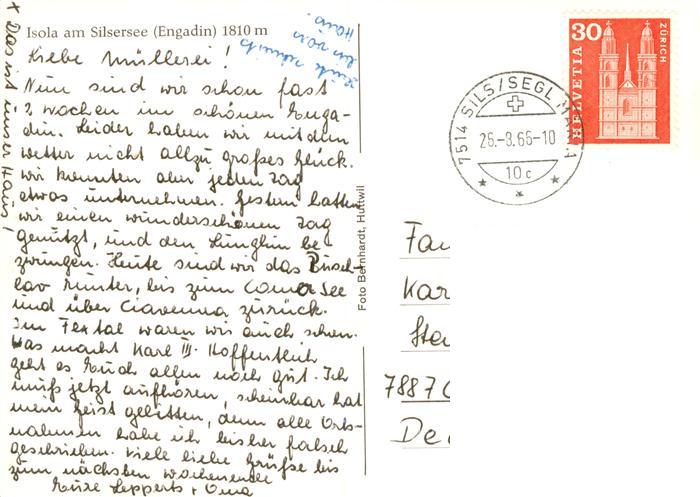 Isola am Silsersee (Engadin) 1810 m
Liebe Müllerei!
Nun sind wir schon fast
2 Wochen im schönen Enga-
din. Leider haben wir mit dem
Wetter nicht allzu großes Glück.
Wir konnten aber jeden Tag
etwas unternehmen. Gestern hatten
wir einen wunderschönen Tag
genützt, und den Lunghin be-
zwungen. Heute sind wir das Pusch-
lav runter, bis zum Comer See
und über Ciavenna zurück.
Im Fextal waren wir auch schon.
Was macht Karl III. Hoffentlich
geht es Euch allen noch gut. Ich
muß jetzt aufhören, scheinbar hat
mein Geist gelitten, denn alle Orts-
nahmen habe ich bisher falsch
geschrieben. Viele liebe Grüße bis
zum nächsten Wochenende
Eure Lepperts + Oma
x Das ist unser Haus!
bin von
Foto Bernhardt, Huttwil
HELVETIA
30
ZÜRICH
7514 SILS/SEGL MARIA
26.-8.66-10
10 c
Fa
Kar
Ste
7887
De